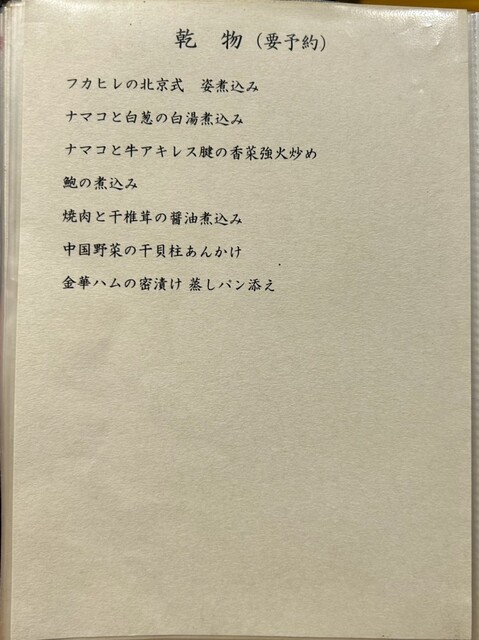 乾　物（要予約）
フカヒレの北京式　姿煮込み
ナマコと白葱の白湯煮込み
ナマコと牛アキレス腱の香菜強火炒め
鮑の煮込み
焼肉と干椎茸の醤油煮込み
中国野菜の干貝柱あんかけ
金華ハムの密漬け 蒸しパン添え